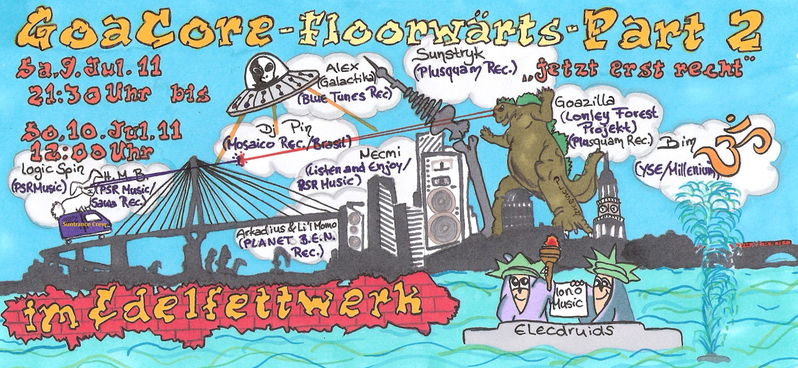 GoaCore-Floorwärts-Part 2
Sa,9.Jul.11
21:30 Uhr bis
So,10.Jul.11
12:00 Uhr
„jetzt erst recht"
Alex
(Galactika)
(Blue Tunes Rec)
Sunstryk
(Plusquam Rec.)
Goazilla
(Lonley Forest
Projekt)
(Plasquam Rec.)
Bim
(YSE/Millenium)
Dj Pin
(Mosaico Rec./Brasil)
Necmi
(Listen and Enjoy/
PSR Music)
Logic Spin
(PSRMusic)
H.M.B.
(PSR Music/
Sawa Rec.)
Suntrance Crew
Arkadius & Li'l Momo
(PLANET B.E.N.
Rec.)
ॐ
im Edelfettwerk
Mono
Music
Elecdruids